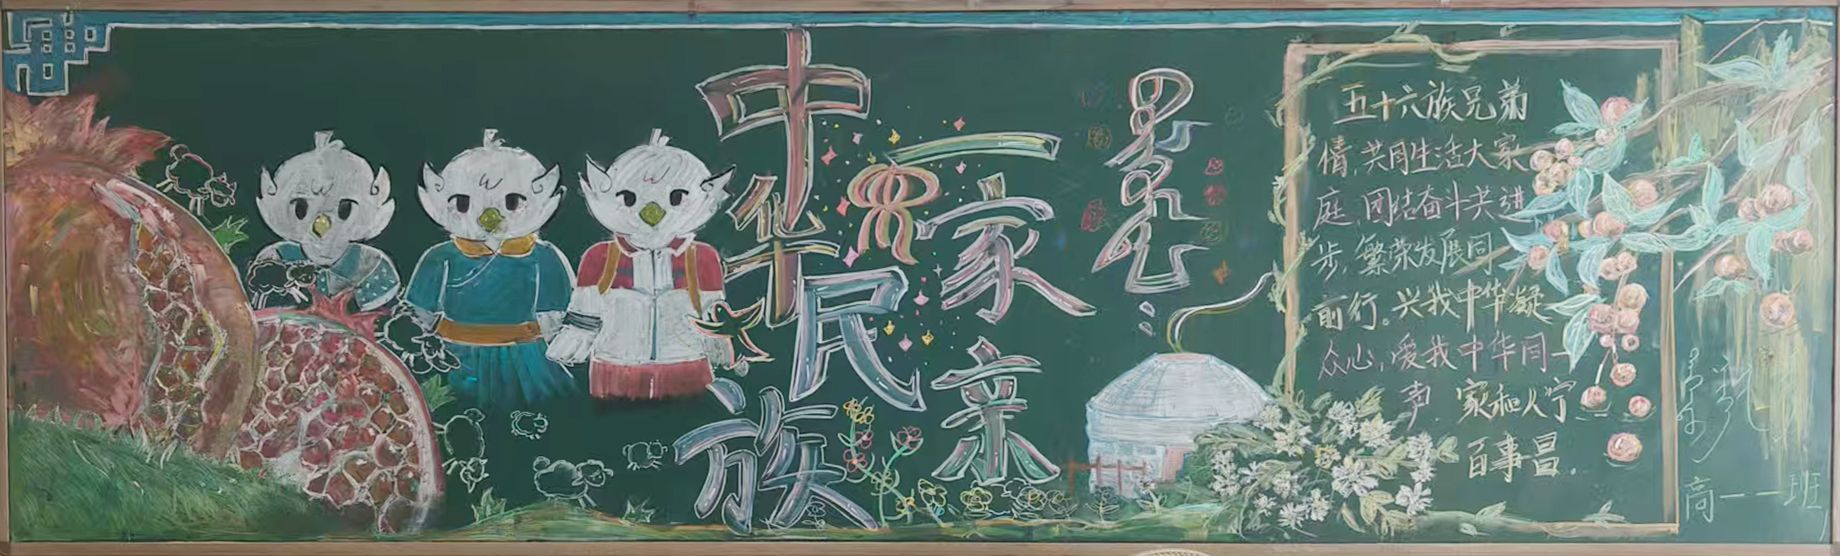 中华民族
一家亲
五十六族兄弟
情,共同生活大家
庭,团结奋斗共进
步,繁荣发展同
前行。兴我中华凝
众心,爱我中华同一
声,家和人宁
百事昌。
高一一班